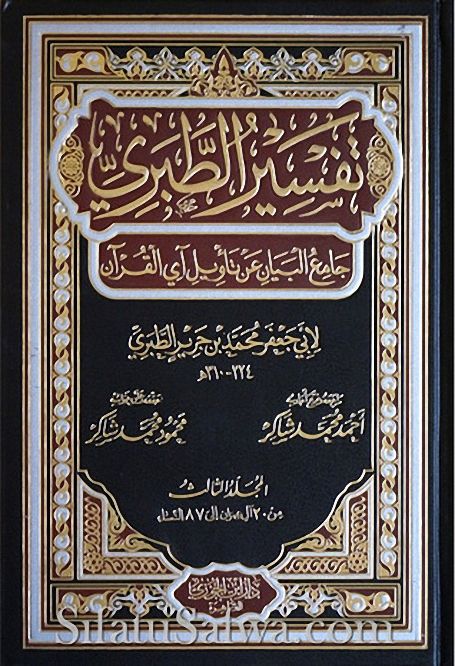 تَفْسِيرُ الطَّبَرِيِّ
جَامِعُ الْبَيَانِ عَنْ تَأْوِيلِ آيِ الْقُرْآنِ
لِأَبِي جَعْفَرٍ مُحَمَّدِ بْنِ جَرِيرٍ الطَّبَرِيِّ
٢٢٤-٣١٠هـ
أَحْمَد مُحَمَّد شَاكِر
مَحْمُود مُحَمَّد شَاكِر
المُجَلَّدُ الثَّالِثُ
مِن ٢٠ آل عمران إلى ٨٧ النساء
دار ابن الجوزي
القاهرة
SilatuSalwa.com